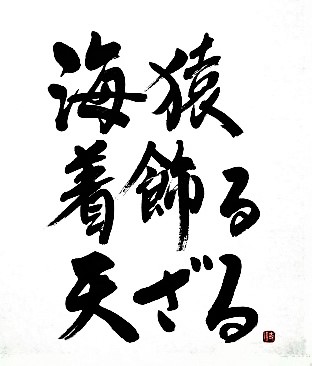 海猿
着飾る
天ざる